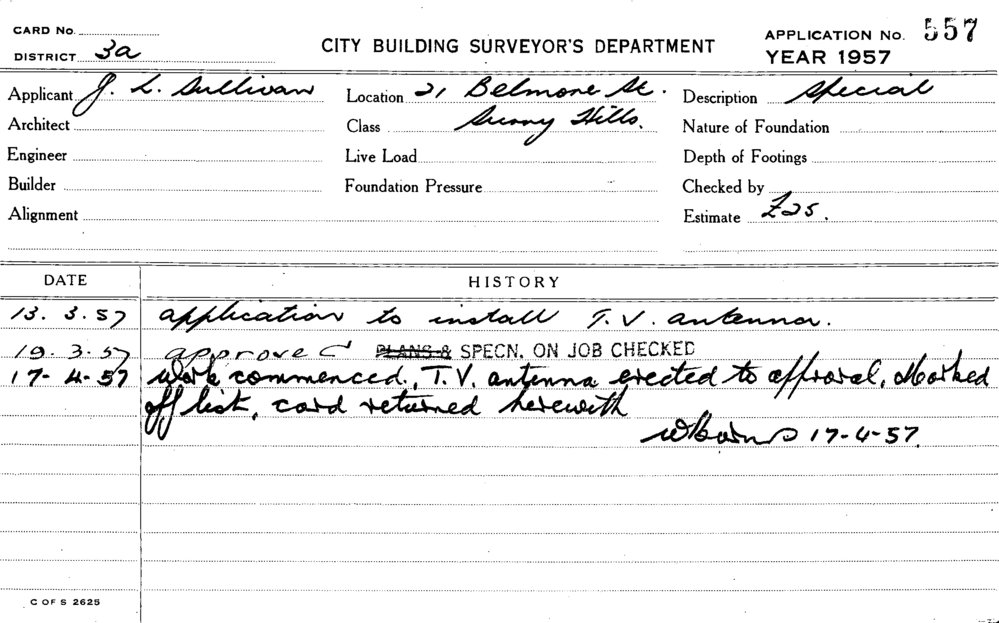 CARD No.
DISTRICT 3a
CITY BUILDING SURVEYOR'S DEPARTMENT
APPLICATION No. 557
YEAR 1957
Applicant J. L. Sullivan
Location 21 Belmore St.
Description Special
Architect
Class Surry Hills.
Nature of Foundation
Engineer
Live Load
Depth of Footings
Builder
Foundation Pressure
Checked by
Alignment
Estimate £25.
DATE HISTORY
13. 3. 57 application to install T.V. antenna.
19. 3. 57 approved PLANS & SPECN. ON JOB CHECKED
17-4-57 Work commenced., T.V. antenna erected to approval, Marked
off list, card returned herewith
17-4-57.
C OF S 2625